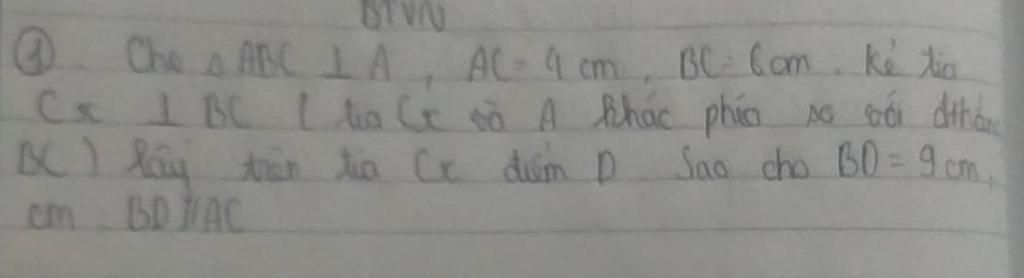 BTVN
① Cho △ ABC ⊥ A, AC = 4 cm, BC = 6 cm. kẻ tia
Cx ⊥ BC ( tia Cx và A khác phía so với đthẳn
BC) lấy trên tia Cx điểm D Sao cho BD = 9 cm,
cm BD // AC